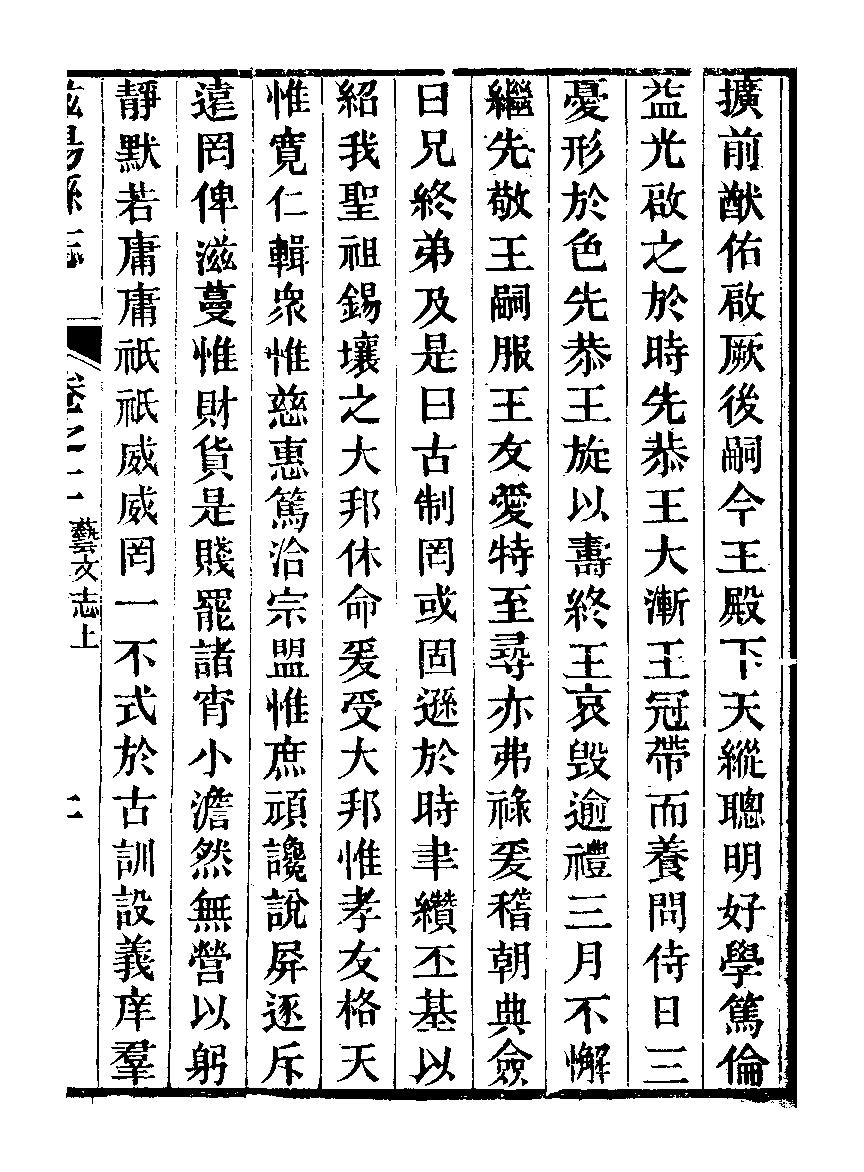 擴前猷佑啟厥後嗣今王殿下天縱聰明好學篤倫
益光啟之於時先恭王大漸王冠帶而養問侍日三
憂形於色先恭王旋以壽終王哀毀逾禮三月不懈
繼先敬王嗣服王友愛特至尋亦弗祿爰稽朝典僉
曰兄終弟及是曰古制罔或固遜於時聿纘丕基以
紹我聖祖錫壤之大邦休命爰受大邦惟孝友格天
惟寬仁輯眾惟慈惠篤洽宗盟惟庶頑讒說屏逐斥
遠罔俾滋蔓惟財貨是賤罷諸宵小澹然無營以躬
靜默若庸庸祇祇威威罔一不式於古訓設義庠羣
滋陽縣志 卷之十一 藝文志上